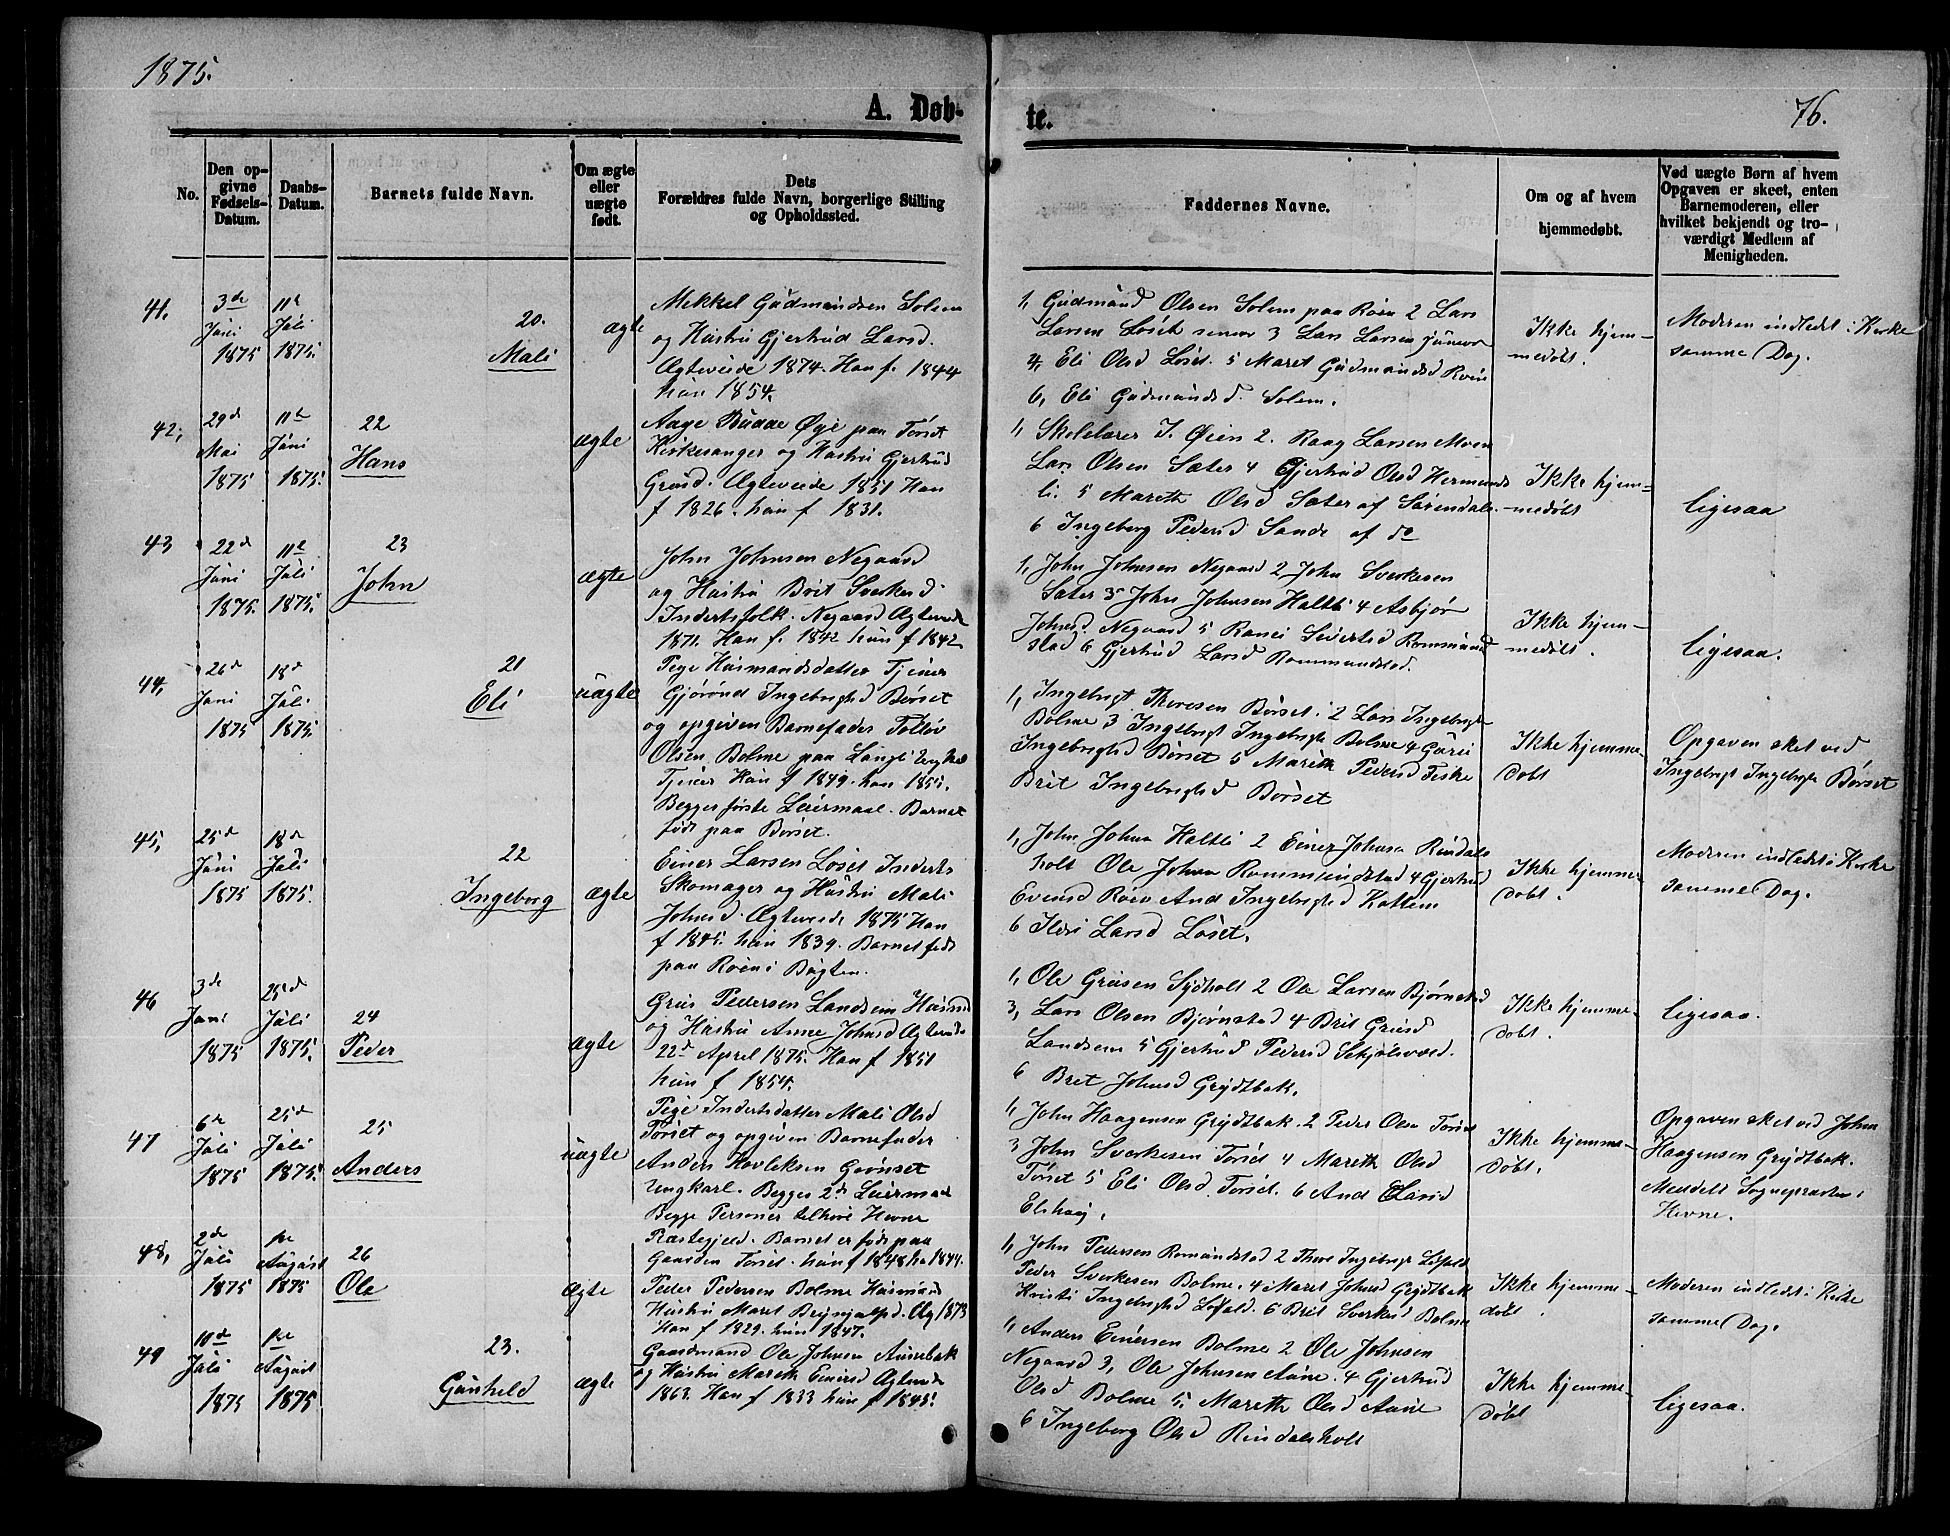 1875.
76.
A. Døb-
te.
No.
Den op-
givne
Fødsels-
Datum.
Daabs-
Datum.
Barnets fulde Navn.
Om ægte
eller
uægte
født.
Dets
Forældres fulde Navn, borgerlige Stilling
og Opholdssted.
Faddernes Navne.
Om og af hvem
hjemmedøbt.
Ved uægte Børn af hvem
Opgaven er skeet, enten
Barnemoderen, eller
hvilket bekjendt og tro-
værdigt Medlem af
Menigheden.
41.
3de
Juni
1875
11te
Juli
1875.
20.
Mali
ægte
Mikkel Gudmundsen Solem
og Hustru Gjertrud Larsd.
Ægteviede 1874. Han f. 1844
hun 1854.
1, Gudmund Olsen Solem paa Roen 2 Lars
Larsen Løset senior 3 Lars Larsen junior
4, Eli Olsd Løset. 5 Maret Gudmundsd Roen
6, Eli Gudmundsd. Solem.
Ikke hjem-
medøbt.
Moderen indledet i Kirke
samme Dag.
42,
29d
Mai
1875
11te
Juni
1875.
22
Hans
ægte
Aage Budde Øye paa Tørset
Kirkesanger og Hustru Gjertrud
Ægteviede 1851 Han
f 1826. hun f 1831.
1, Skolelærer J. Øien 2. Raag Larsen Moen
Lars Olsen Sæter 4 Gjertrud Olsd Hermunds
li. 5 Mareth Olsd Sæter af Surendal.
6 Ingeborg Pedersd Sande af do
Ikke hjem-
medøbt
ligesaa
43
22d
Juni
1875.
11te
Juli
1875.
23
John
ægte
John Johnsen Negaard
og Hustru Brit Sverkesd
Inderstfolk. Negaard Ægteviede
1871. Han f. 1842 hun f 1842
1, John Johnsen Negaard 2 John Sverkesen
Sæter 3 John Johnsen Haltli 4 Asbjør
Johnsd. Negaard 5 Ranei Sivertsd Rommund
stad 6 Gjertrud Larsd Rommundstad.
Ikke hjem-
medøbt.
ligesaa.
44,
26d
Juni
1875
18d
Juli
1875.
21
Eli
uægte
Pige Husmandsdatter Tjener
Gjørond Ingebrigtsd Børset
og opgiven Barnefader Tollev
Olsen Bolme paa
Tjener Han f 1849. hun 1851.
Begges første Leiermaal. Barnet
født paa Børset.
1, Ingebrigt Thoresen Børset. 2 Lars Ingebrigts
Bolme 3 Ingebrigt Ingebrigts Bolme 4 Guri
Ingebrigtsd Børset 5 Mareth Pedersd Fiske
Brit Ingebrigtsd Børset
Ikke hjemme-
døbt
Opgaven sket ved
Ingebrigt Ingebrigts Børset
45,
25d
Juni
1875
18d
Juli
1875.
22
Ingeborg
ægte
Einer Larsen Løset Inderst
Skomager og Hustru Mali
Johnsd. Ægteviede 1875 Han
f 1845. hun 1839. Barnet født
paa Roen i Bøgten.
1, John Johnsn Haltli 2 Einer Johnsen Rindals
holt Ole Johnsn Rommundstad 4 Gjertrud
Evensd Roen And Ingebrigtsd Kattem
6 Ildri Larsd Løset.
Ikke hjemme-
døbt.
Moderen indledet i Kirke
samme Dag.
46
3de
Juni
1875
25d
Juli
1875.
24
Peder
ægte
Gruis Pedersen Landsem Husmd
og Hustru Anne Johnsd Ægteviede
22d April 1875. Han f 1851
hun f 1854.
1, Ole Gruisen Sydholt 2 Ole Larsen Bjørnstad
3, Lars Olsen Bjørnstad 4 Brit Gruisd
Landsem 5 Gjertrud Pedersd
6 Bret Johnsd Grytbak.
Ikke hjemme-
døbt.
ligesaa.
47
6te
Juli
1875
25d
Juli
1875.
25
Anders
uægte
Pige Inderstdatter Mali Olsd
Tørset og opgiven Barnefader
Anders Havleksen Grønset
Ungkarl. Begges 2de Leiermaal
Begge Personer tilhøre Hevne
Præstegjeld. Barnet er født paa
Gaarden Tørset. hun f 1848 han 1844.
1, John Haagensen Grytbak. 2 Peder Olsn Tørset
3 John Sverkesen Tørset 4 Mareth Olsd
Tørset 5 Eli Olsd. Tørset. 6 And Larsd
Elshaug.
Ikke hjemme-
døbt.
Opgaven sket ved John
Haagensen Grytbak.
Meddelt Sognepræsten i
Hevne.
48,
2de
Juli
1875
1ste
August
1875
26
Ole
ægte
Peder Pedersen Bolme Husmand
Hustru Maret Ægv 1873
Han f 1829. hun 1847.
1, John Pedersen Romundstad 2 Thore Ingebrigts Løfald
Peder Sverkesen Bolme. 4 Maret Johnsd Grytbak
Kristi Ingebrigtsd Løfald. 6 Brit Sverkesd Bolme
Ikke hjemme-
døbt.
Moderen indledet i Kirke
samme Dag.
49
10de
Juli
1875
1ste
August
1875
23.
Gunhild
ægte
Gaardmand Ole Johnsen Aunebak
og Hustru Mareth Einersd Ægteviede
1863. Han f 1833 hun f 1845.
1, Anders Einersen Bolme 2 Ole Johnsen
Negaard 3, Ole Johnsen Aune. 4 Gjertrud
Olsd Bolme 5. Mareth Olsd Aune
6 Ingeborg Olsd Rindalsholt
Ikke hjemme-
døbt
ligesaa.